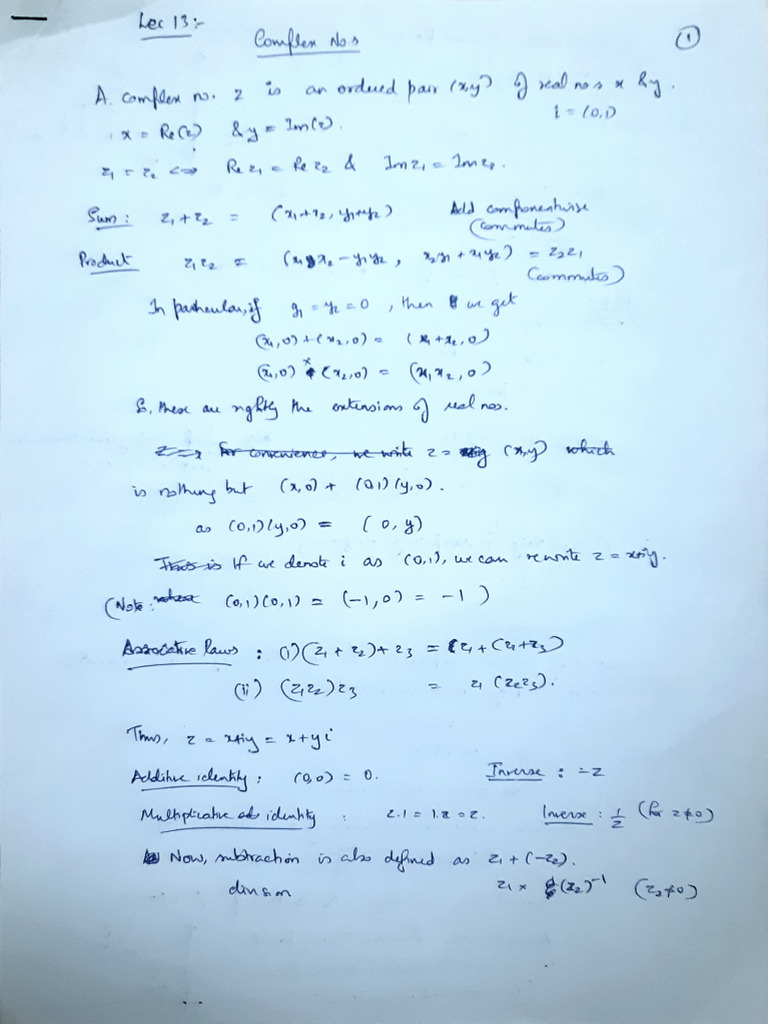 Lec 13:-
Complex No.s
①
A complex no. z is an ordered pair (x,y) of real nos x & y.
x = Re(z) & y = Im(z). i = (0,1)
z₁ = z₂ <=> Re z₁ = Re z₂ & Im z₁ = Im z₂.
Sum: z₁ + z₂ = (x₁+x₂, y₁+y₂) Add componentwise
(commutes)
Product z₁z₂ = (x₁x₂ - y₁y₂, x₂y₁ + x₁y₂) = z₂z₁
(commutes)
In particular, if y₁ = y₂ = 0, then we get
(x₁,0) + (x₂,0) = (x₁+x₂,0)
(x₁,0) × (x₂,0) = (x₁x₂,0)
So, these are rightly the extensions of real nos.
z = x For convenience, we write z = (x,y) which
is nothing but (x,0) + (0,1)(y,0).
as (0,1)(y,0) = (0, y)
Thus is If we denote i as (0,1), we can rewrite z = x+iy.
(Note: where (0,1)(0,1) = (-1,0) = -1)
Associative laws: (i) (z₁ + z₂) + z₃ = z₁ + (z₁+z₃)
(ii) (z₁z₂)z₃ = z₁(z₂z₃).
Thus, z = x+iy = x+yi
Additive identity: (0,0) = 0. Inverse: -z
Multiplicative identity: z.1 = 1.z = z. Inverse: 1/z (for z≠0)
Now, subtraction is also defined as z₁ + (-z₂).
division z₁ × (z₂)⁻¹ (z₂≠0)